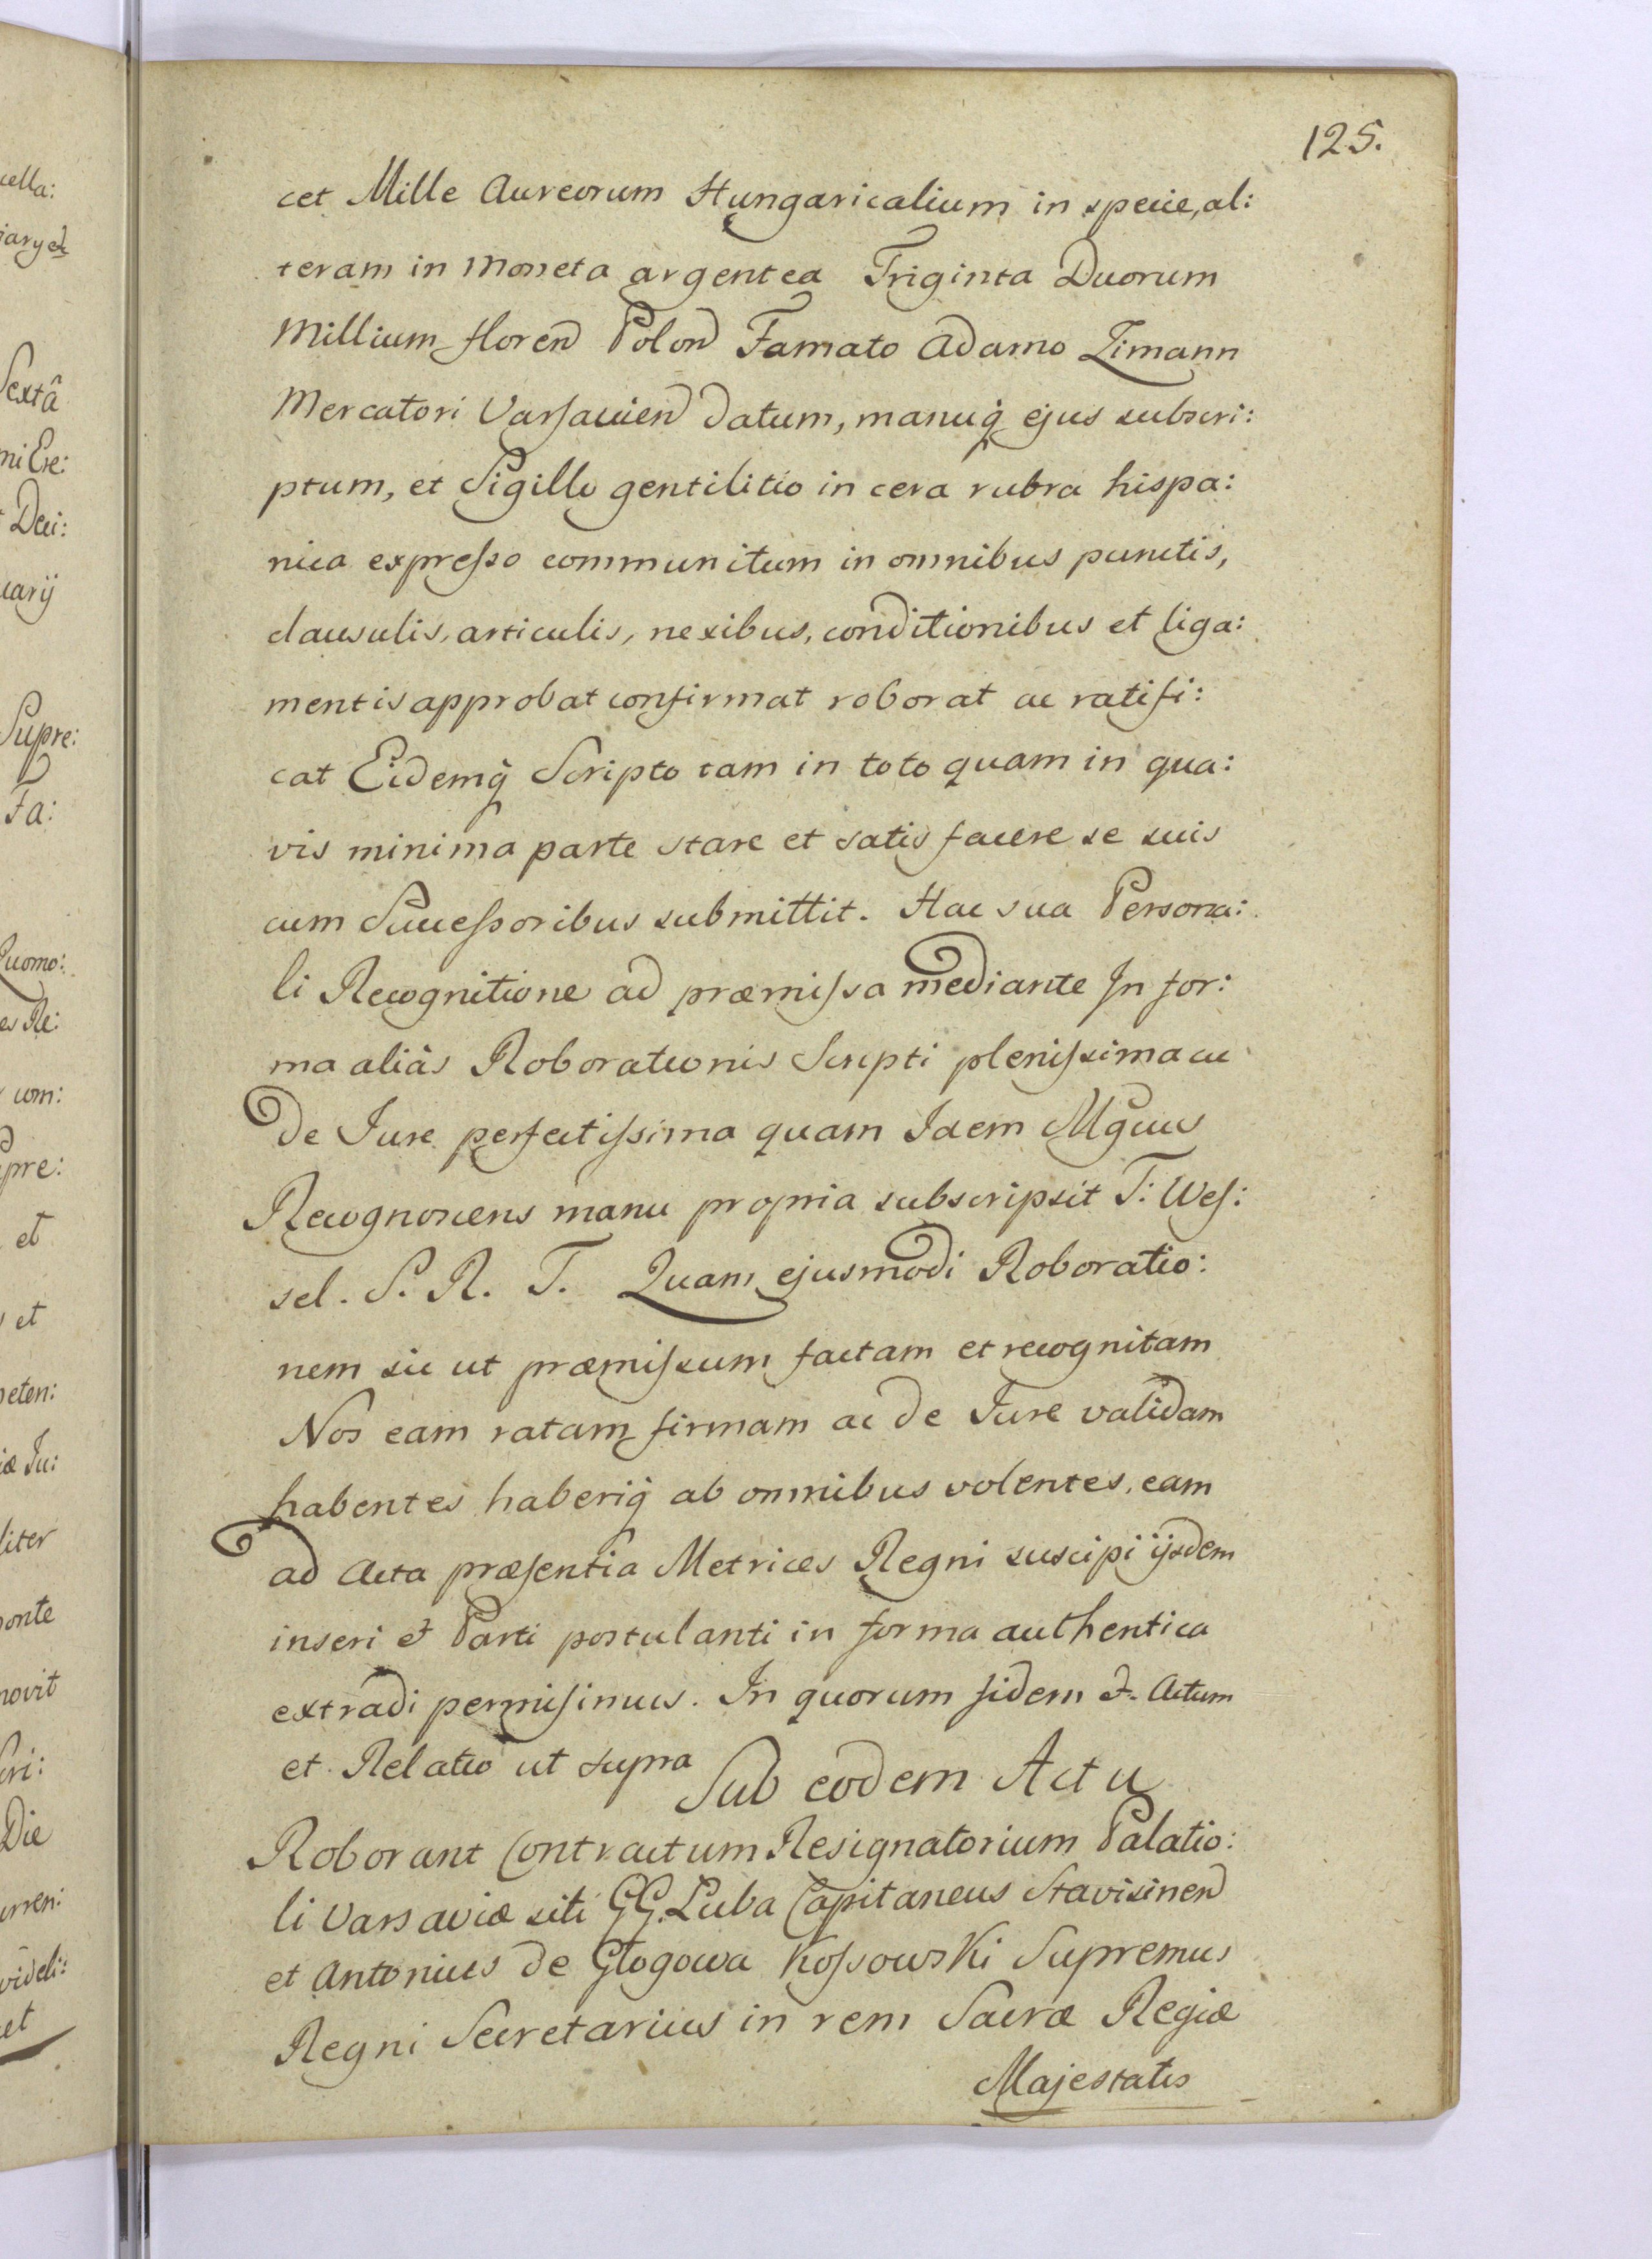 125.
cet Mille Aureorum Hungaricalium in specie, al:
teram in Moneta argentea Triginta Duorum
Millium floren Polon Famato Adamo Zimann
Mercatori Varsavien datum, manuq ejus subscri:
ptum, et Sigillo gentilitio in cera rubra hispa:
nica expresso communitum in omnibus punctis,
clausulis, articulis, nexibus, conditionibus et liga:
mentis approbat confirmat roborat ac ratifi:
cat Eidemq Scripto tam in toto quam in qua:
vis minima parte stare et satis facere se suis
cum Successoribus submittit. Hac sua Persona:
li Recognitione ad præmissa mediante In for:
ma aliàs Roborationis Scripti plenissima ac
de Jure perfectissima quam Idem Mgcus
Recognoscens manu propria subscripsit T: Wes:
sel. P. R. T. Quam ejusmodi Roboratio:
nem sic ut præmissum factam et recognitam
Nos eam ratam firmam ac de Jure validam
habentes haberiq ab omnibus volentes, eam
ad Acta præsentia Metrices Regni suscipi ijsdem
inseri et Parti postulanti in forma authentica
extradi permisimus. In quorum fidem &. Actum
et Relatio ut supra
Sub eodem Actu
Roborant Contractum Resignatorium Palatio:
li Varsaviæ siti GG. Luba Capitaneus Stavisinen
et Antonius de Głogowa Kossowski Supremus
Regni Secretarius in rem Sacræ Regiæ
Majestatis
cella:
Sextâ
mi Ere:
Deci:
uarij
Supre:
Fa:
Quomo:
es Re:
com:
pre:
et
et
peten:
iæ Ju:
liter
ponte
novit
Scri:
Die
urren:
videli:
cet